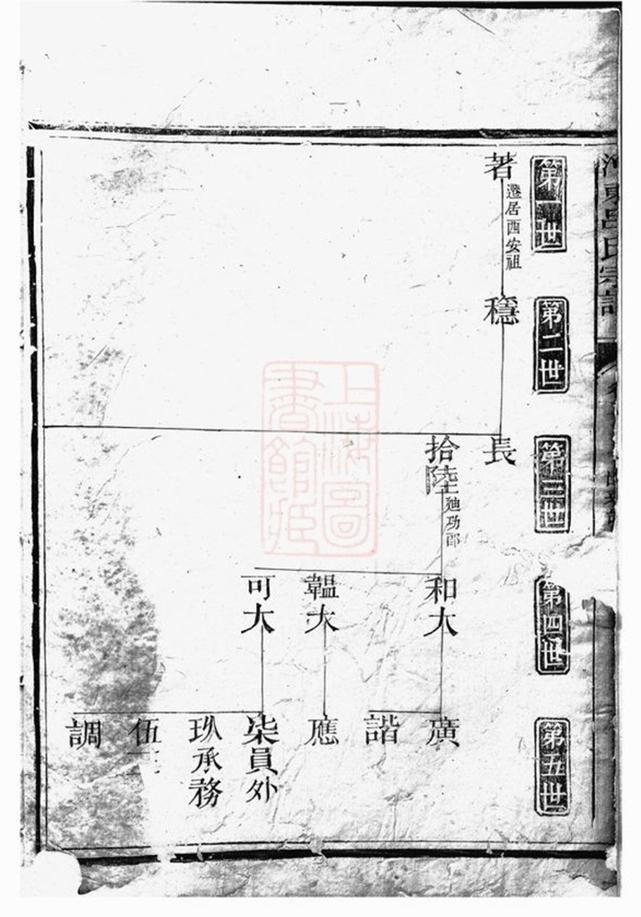 河東呂氏宗譜
第一世
第二世
第三世
第四世
第五世
著
遷居西安祖
穩
長
拾陸
廸功郎
和大
韞大
可大
廣
諧
應
柒員外
玖承務
伍
調
上海圖書館藏